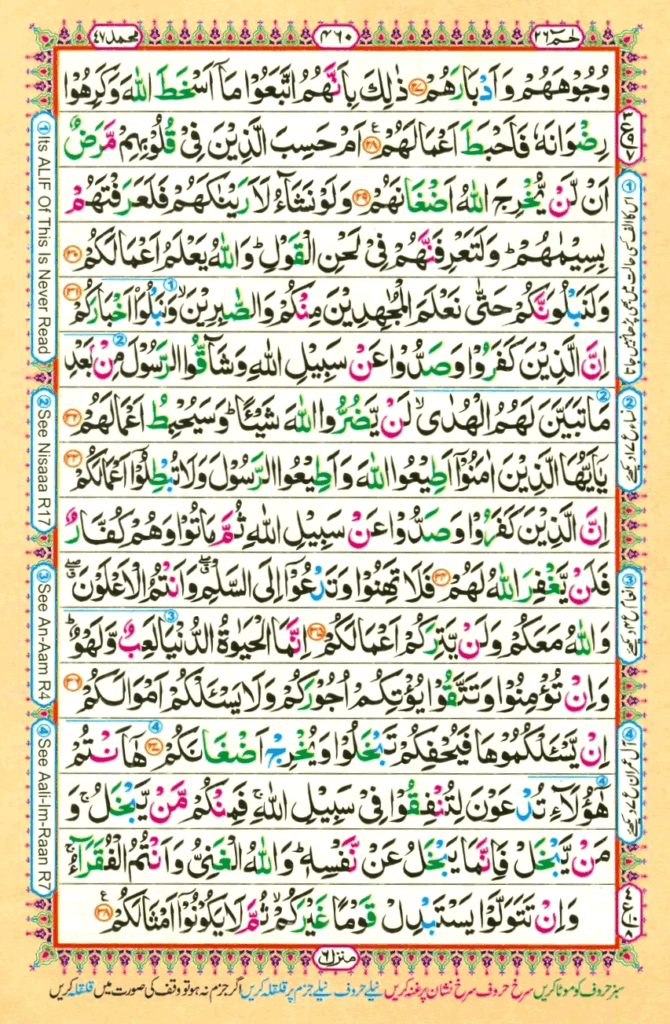 حٰمٓ ٢٦
٤٦٠
محمد ٤٧
وُجُوْهَهُمْ وَاَدْبَارَهُمْ ﴿٢٧﴾ ذٰلِكَ بِاَنَّهُمُ اتَّبَعُوْا مَاۤ اَسْخَطَ اللّٰهَ وَكَرِهُوْا
رِضْوَانَهٗ فَاَحْبَطَ اَعْمَالَهُمْ ﴿٢٨﴾ اَمْ حَسِبَ الَّذِيْنَ فِيْ قُلُوْبِهِمْ مَّرَضٌ
اَنْ لَّنْ يُّخْرِجَ اللّٰهُ اَضْغَانَهُمْ ﴿٢٩﴾ وَلَوْ نَشَآءُ لَاَرَيْنٰكَهُمْ فَلَعَرَفْتَهُمْ
بِسِيْمٰهُمْ ؕ وَلَتَعْرِفَنَّهُمْ فِيْ لَحْنِ الْقَوْلِ ؕ وَاللّٰهُ يَعْلَمُ اَعْمَالَكُمْ ﴿٣٠﴾
وَلَنَبْلُوَنَّكُمْ حَتّٰى نَعْلَمَ الْمُجٰهِدِيْنَ مِنْكُمْ وَالصّٰبِرِيْنَ ۙ وَنَبْلُوَا۟ اَخْبَارَكُمْ ﴿٣١﴾
اِنَّ الَّذِيْنَ كَفَرُوْا وَصَدُّوْا عَنْ سَبِيْلِ اللّٰهِ وَشَآقُّوا الرَّسُوْلَ مِنْۢ بَعْدِ
مَا تَبَيَّنَ لَهُمُ الْهُدٰى ۙ لَنْ يَّضُرُّوا اللّٰهَ شَيْـًٔا ؕ وَسَيُحْبِطُ اَعْمَالَهُمْ ﴿٣٢﴾
يٰۤاَيُّهَا الَّذِيْنَ اٰمَنُوْۤا اَطِيْعُوا اللّٰهَ وَاَطِيْعُوا الرَّسُوْلَ وَلَا تُبْطِلُوْۤا اَعْمَالَكُمْ ﴿٣٣﴾
اِنَّ الَّذِيْنَ كَفَرُوْا وَصَدُّوْا عَنْ سَبِيْلِ اللّٰهِ ثُمَّ مَاتُوْا وَهُمْ كُفَّارٌ
فَلَنْ يَّغْفِرَ اللّٰهُ لَهُمْ ﴿٣٤﴾ فَلَا تَهِنُوْا وَتَدْعُوْۤا اِلَى السَّلْمِ ۖ وَاَنْتُمُ الْاَعْلَوْنَ ۖ
وَاللّٰهُ مَعَكُمْ وَلَنْ يَّتِرَكُمْ اَعْمَالَكُمْ ﴿٣٥﴾ اِنَّمَا الْحَيٰوةُ الدُّنْيَا لَعِبٌ وَّلَهْوٌ ؕ
وَاِنْ تُؤْمِنُوْا وَتَتَّقُوْا يُؤْتِكُمْ اُجُوْرَكُمْ وَلَا يَسْـَٔلْكُمْ اَمْوَالَكُمْ ﴿٣٦﴾
اِنْ يَّسْـَٔلْكُمُوْهَا فَيُحْفِكُمْ تَبْخَلُوْا وَيُخْرِجْ اَضْغَانَكُمْ ﴿٣٧﴾ هٰۤاَنْتُمْ
هٰۤؤُلَآءِ تُدْعَوْنَ لِتُنْفِقُوْا فِيْ سَبِيْلِ اللّٰهِ ۚ فَمِنْكُمْ مَّنْ يَّبْخَلُ ۚ وَ
مَنْ يَّبْخَلْ فَاِنَّمَا يَبْخَلُ عَنْ نَّفْسِهٖ ؕ وَاللّٰهُ الْغَنِيُّ وَاَنْتُمُ الْفُقَرَآءُ ۚ
وَاِنْ تَتَوَلَّوْا يَسْتَبْدِلْ قَوْمًا غَيْرَكُمْ ۙ ثُمَّ لَا يَكُوْنُوْۤا اَمْثَالَكُمْ ﴿٣٨﴾
① Its ALIF Of This Is Never Read
② See Nisaaa R17
③ See An-Aam R4
④ See Aali-Im-Raan R7
منزل ٦
سبز حروف کو موٹا کریں سرخ حروف سرخ نشان پر غنہ کریں نیلے حروف نیلے جزم پر قلقلہ کریں اگر جزم نہ ہو تو وقف کی صورت میں قلقلہ کریں